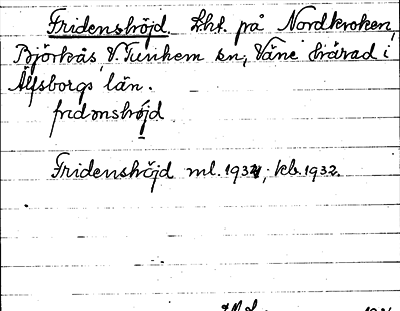 Fridenshöjd. Lht. på Nordkroken,
Björkås, V. Tunhem sn, Väne härad i
Älfsborgs län.
fridonshöjd
Fridenshöjd ml. 1931, kb. 1932.